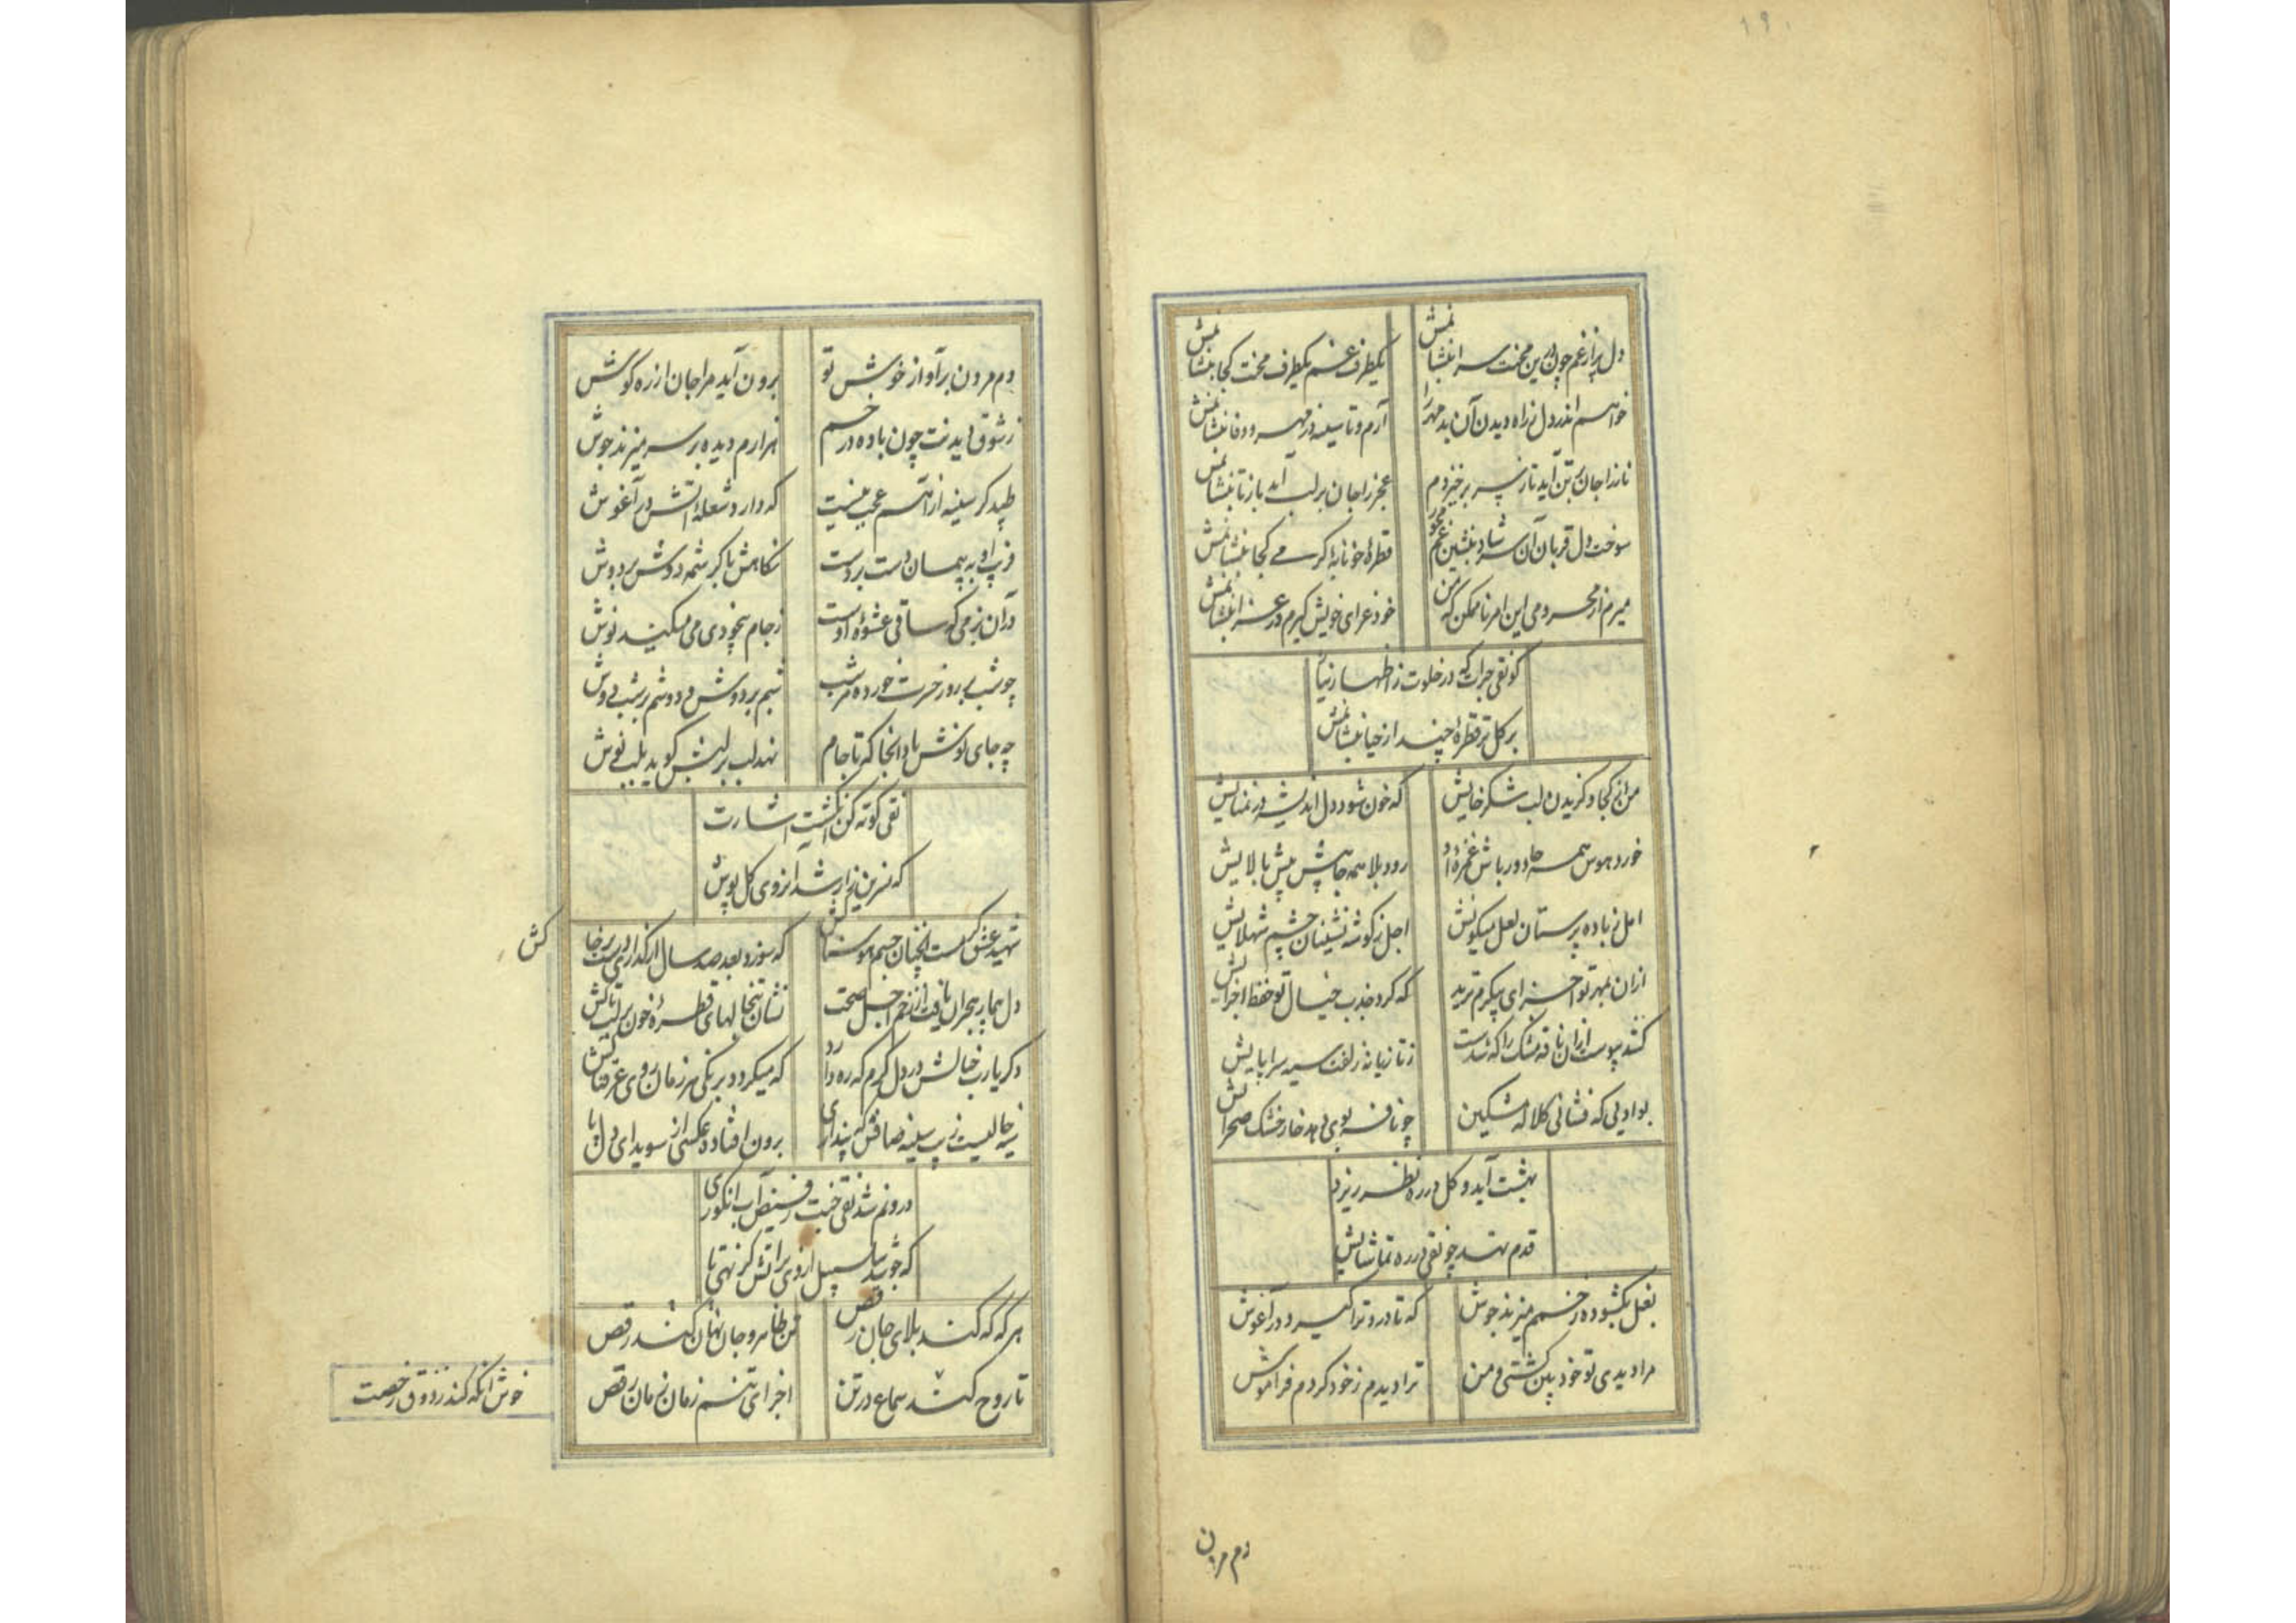 ۱۹۰
دل پر از غم چون این محنت سرا بنشانمش
یکطرف غم یکطرف محنت کجا بنشانمش
خواهم اندر دل ز راه دیدن آن بدمهر را
آرم و تا سینه در مهر و وفا بنشانمش
ناز را جان بتن آید تا ز پس برخیزدم
عجز را جان بر لب آید باز تا بنشانمش
سوخت دل قربان آن سر شاد بنشین غم مخور
قطرهٔ خونابهٔ کر می کجا بنشانمش
میرم از محرومی این امر ناممکن که من
خود عزای خویش گیرم در عزا بنشانمش
کو نقی جرات که در خلوت ز اظهار نیاز
بر کل تر قطرهٔ چند از حیا بنشانمش
من از کجا و گزیدن لب شکرخایش
که خون شود دل اندیشه در تمنایش
خورد هوس همه جا دورباش غمزهٔ او
رود بلا همه جا پیش پیش بالایش
امل ز باده پرستان لعل میکونش
اجل ز کوشه نشینان چشم شهلایش
ازان بمهر تو اجزای پیکرم
که کرد جذب خیال تو حفظ اجزایش
کشد پوست ازان نافه مشک را که شدست
ز تازیانه زلفت سیه سراپایش
بوادیی که فشانی کلاله مشکین
چو نافه بوی دهد خار خشک صحرایش
بهشت آید و کل در ره نظر ریزد
قدم نهد چو نقی در ره تماشایش
بغل بکشوده زخمم میزند جوش
که تا درد ترا گیرد در آغوش
مرا دیدی تو خود بین گشتی و من
ترا دیدم ز خود کردم فراموش
دم مردن
دم مردن بر آواز خوش تو
برون آید مرا جان از ره کوش
ز شوق دیدنت چون باده در خم
نهرارم دیده بر سر میزند جوش
طپد کر سینه از آتش عجب نیست
که دارد شعلهٔ آتش در آغوش
فریب او به پیمان دست بردست
نکاهش با کرشمه دوش بر دوش
در آن بزمی که ساقی عشوهٔ اوست
ز جام بیخودی می میکنید نوش
چو شب بی روز حسرت خورده هر شب
شبم بر دوش و دوشم بر شب دوش
چه جای نوش باد آنجا که تا جام
نهد لب بر لبش کوید بلب نوش
نقی کوته کن انگشت اشارت
که نسرین زار شد از وی کل پوش
شهید عشق کست آنچنان جسم هوسناکش
که سوزد بعد صد سال ار گذاری دست بر خاکش
دل بیمار هجران یافت از زخم اجل صحت
نشان تبخالهای قطرهٔ خون بر لب تاکش
دکر یارب خیالش در دل گرم که ره دارد
که میگردد برنگی هر زمان روی عرقناکش
نه خالیست زیب سینه صافش که پنداری
برون افتاده عکسی از سویدای دل پاکش
درونم شد نقی جنت ز فیض آب انکوری
که جوشد سلسبیل از وی بر آتش گر نهی تاکش
هر گه که کند بلای جان رقص
تن ظاهر و جان نهان کند رقص
تا روح کند سماع در تن
اجزای تنم زمان زمان رقص
خوش آنکه کند ز ذوق رخصت